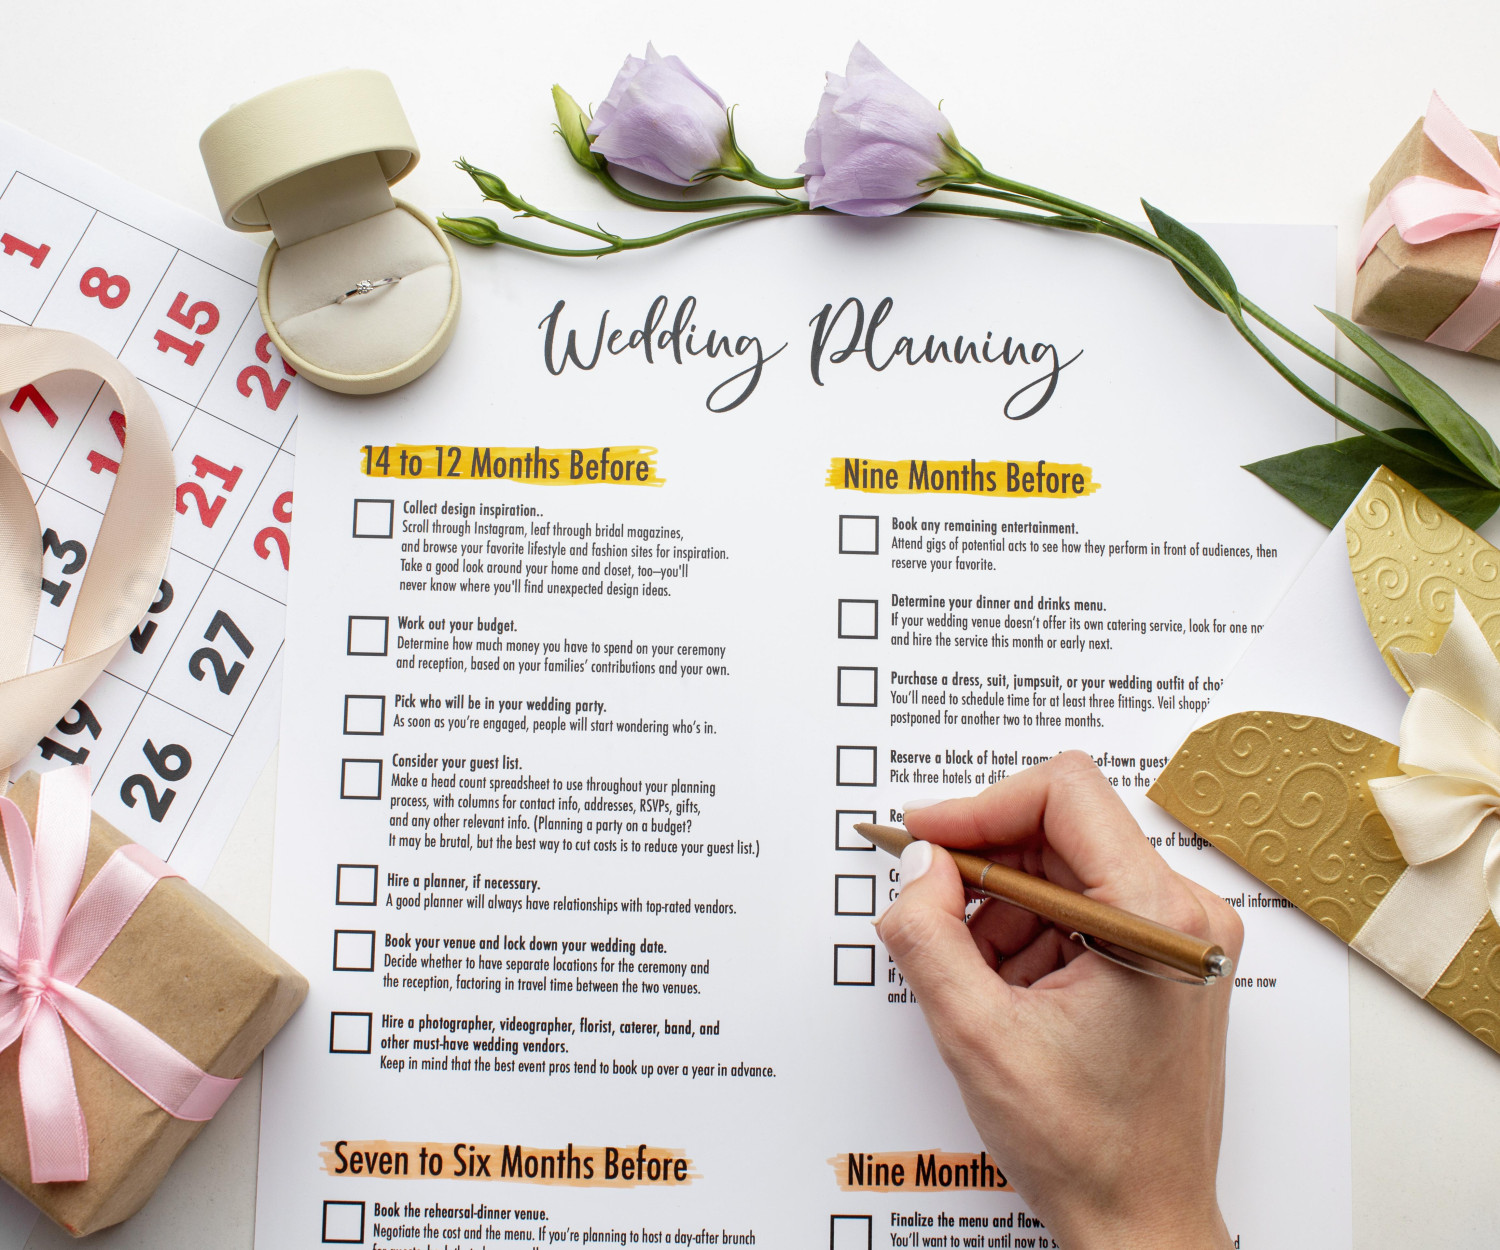 Wedding Planning
14 to 12 Months Before
Collect design inspiration..
Scroll through Instagram, leaf through bridal magazines,
and browse your favorite lifestyle and fashion sites for inspiration.
Take a good look around your home and closet, too–you'll
never know where you'll find unexpected design ideas.
Work out your budget.
Determine how much money you have to spend on your ceremony
and reception, based on your families' contributions and your own.
Pick who will be in your wedding party.
As soon as you're engaged, people will start wondering who's in.
Consider your guest list.
Make a head count spreadsheet to use throughout your planning
process, with columns for contact info, addresses, RSVPs, gifts,
and any other relevant info. (Planning a party on a budget?
It may be brutal, but the best way to cut costs is to reduce your guest list.)
Hire a planner, if necessary.
A good planner will always have relationships with top-rated vendors.
Book your venue and lock down your wedding date.
Decide whether to have separate locations for the ceremony and
the reception, factoring in travel time between the two venues.
Hire a photographer, videographer, florist, caterer, band, and
other must-have wedding vendors.
Keep in mind that the best event pros tend to book up over a year in advance.
Seven to Six Months Before
Book the rehearsal-dinner venue.
Negotiate the cost and the menu. If you're planning to host a day-after brunch
Nine Months Before
Book any remaining entertainment.
Attend gigs of potential acts to see how they perform in front of audiences, then
reserve your favorite.
Determine your dinner and drinks menu.
If your wedding venue doesn't offer its own catering service, look for one
and hire the service this month or early next.
Purchase a dress, suit, jumpsuit, or your wedding outfit of
You'll need to schedule time for at least three fittings. Veil
postponed for another two to three months.
Reserve a block of hotel
Pick three hotels at
to the
of
If
and
one now
Nine Months
Finalize the menu and
You'll want to wait until now to
1
8
15
22
7
14
21
28
13
20
27
19
26